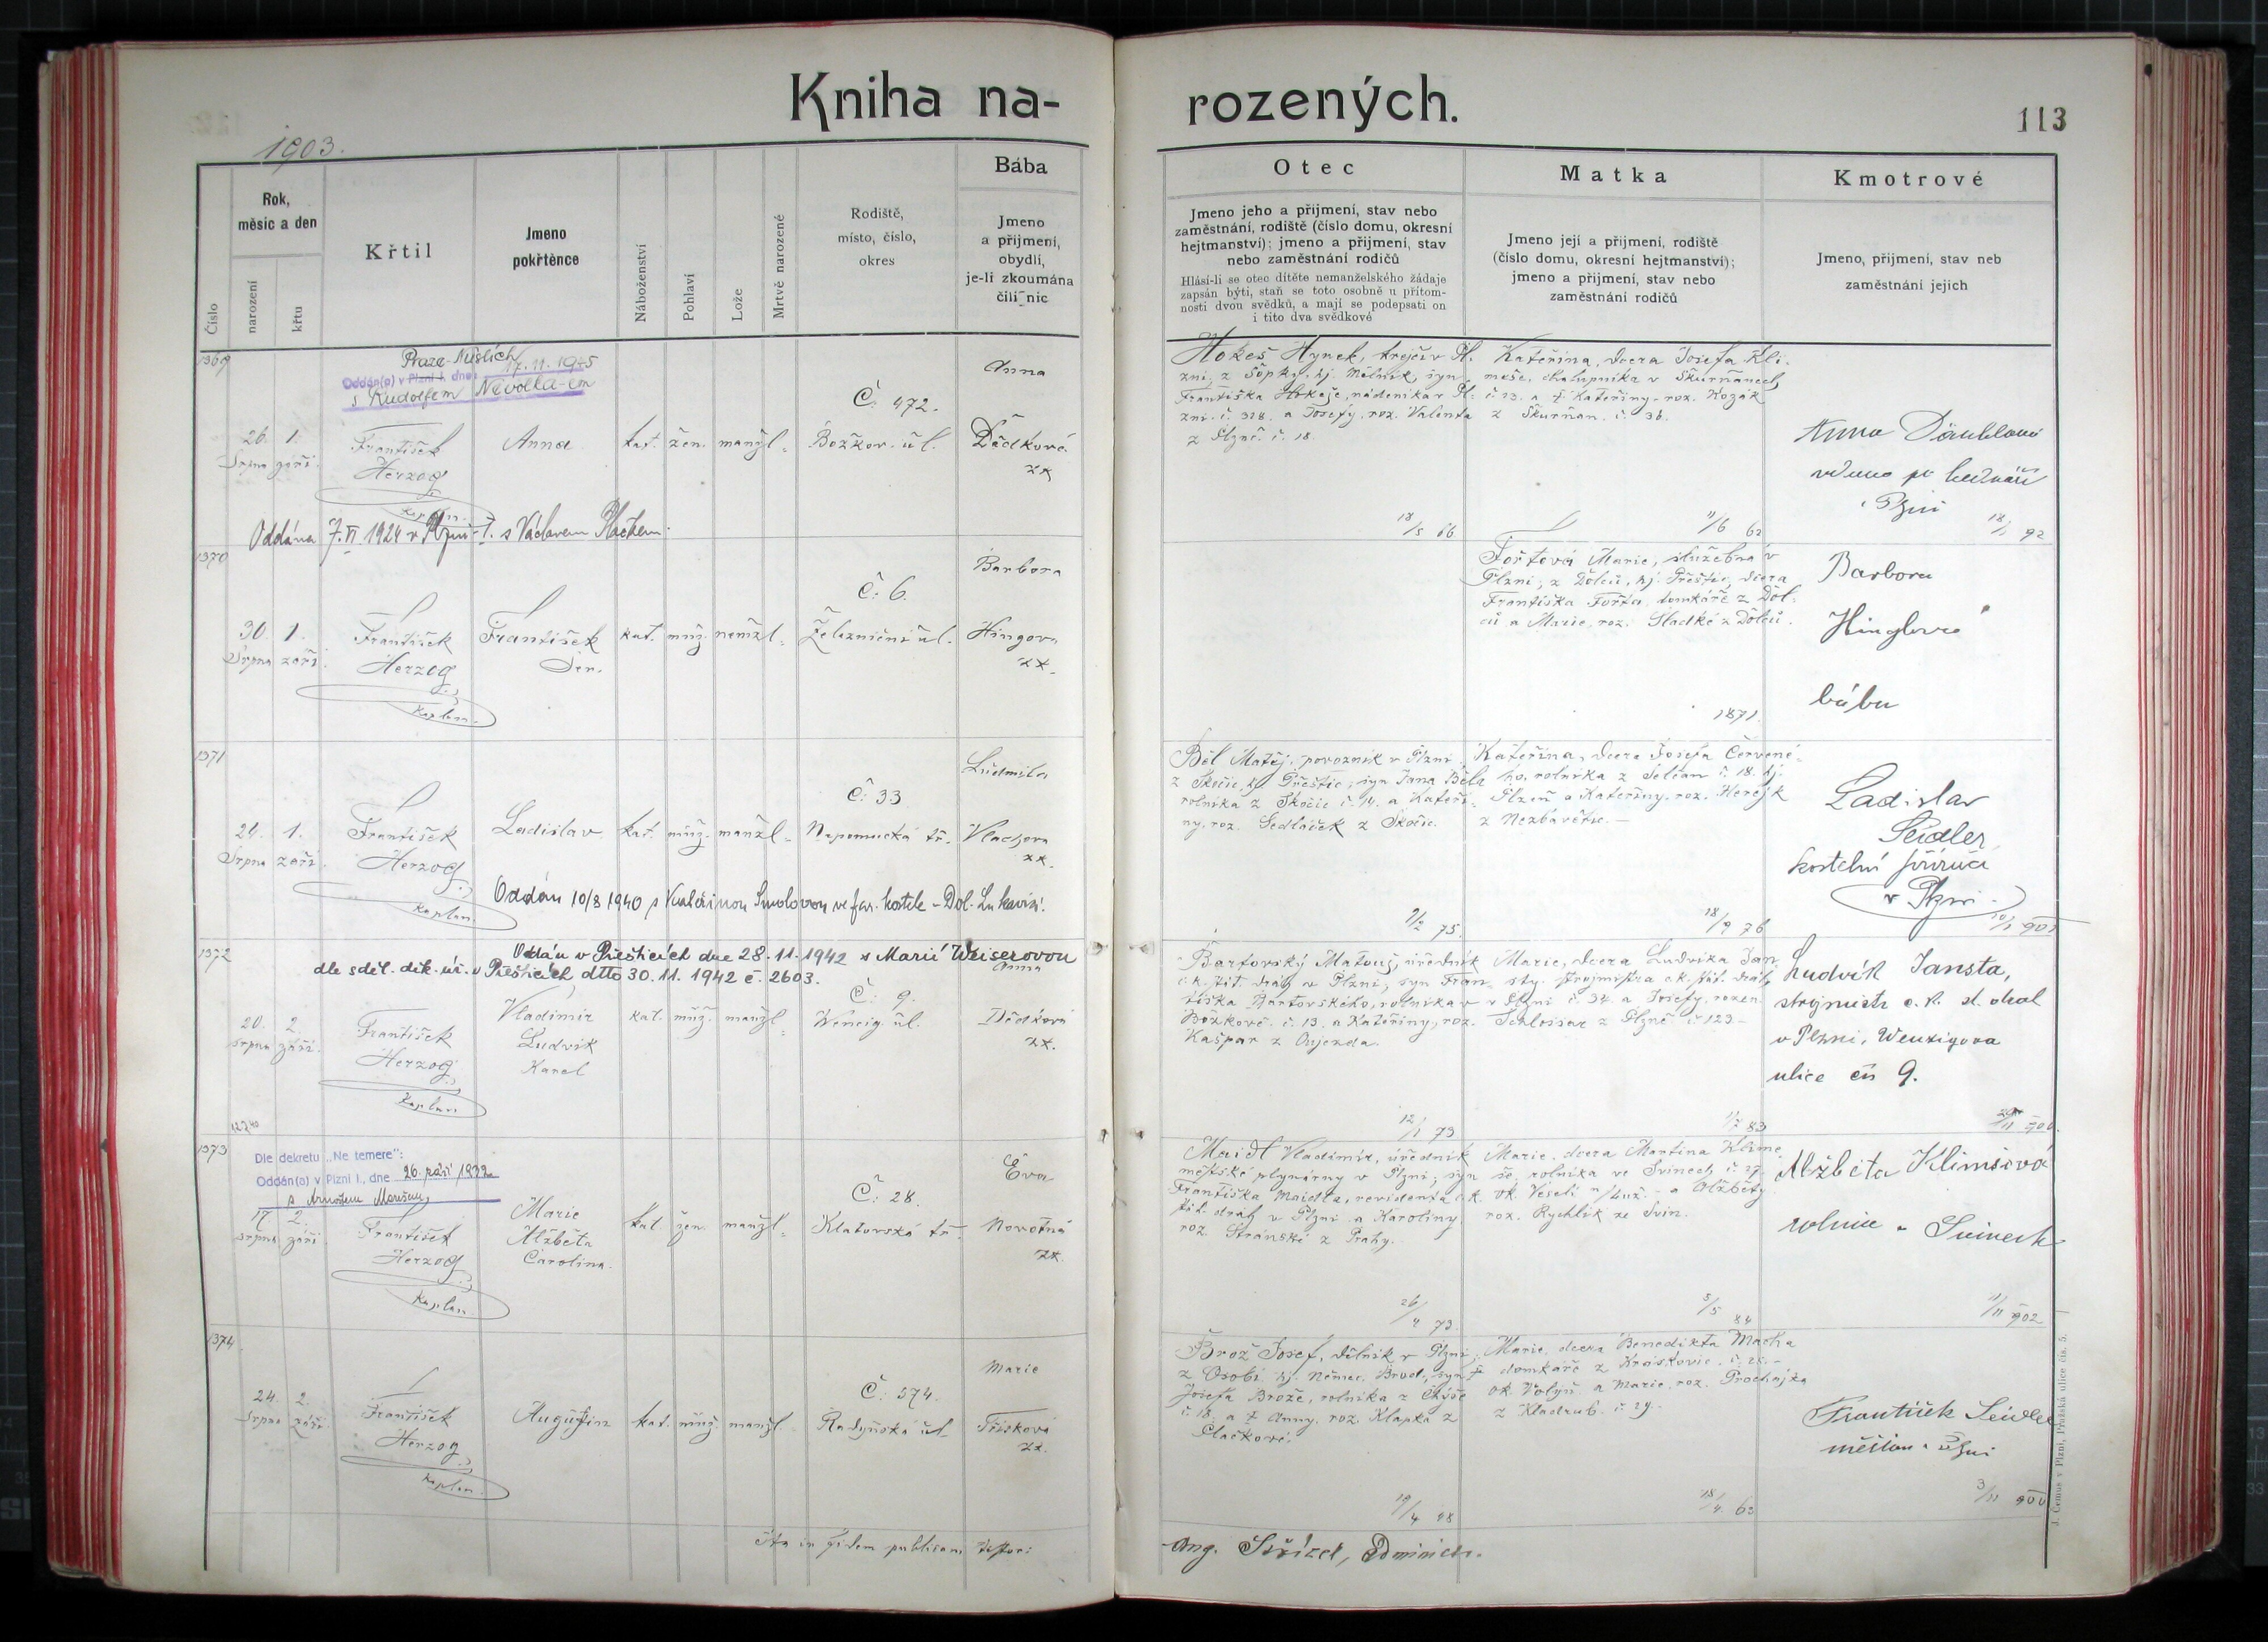 Kniha na-
rozených.
113
1903.
Číslo
Rok,
měsíc a den
narození
křtu
Křtil
Jmeno
pokřtěnce
Náboženství
Pohlaví
Lože
Mrtvě narozené
Rodiště,
místo, číslo,
okres
Bába
Jmeno
a přijmení,
obydlí,
je-li zkoumána
čili nic
Otec
Jmeno jeho a přijmení, stav nebo
zaměstnání, rodiště (číslo domu, okresní
hejtmanství); jmeno a přijmení, stav
nebo zaměstnání rodičů
Hlásí-li se otec dítěte nemanželského žádaje
zapsán býti, staň se toto osobně u přítom-
nosti dvou svědků, a mají se podepsati on
i tito dva svědkové
Matka
Jmeno její a přijmení, rodiště
(číslo domu, okresní hejtmanství);
jmeno a přijmení, stav nebo
zaměstnání rodičů
Kmotrové
Jmeno, přijmení, stav neb
zaměstnání jejich
1369
Praze-Nuslích
Oddán(a) v Plzni I., dne 17.11.1945
s Rudolfem
26. 1.
Srpna září
František
Herzog
kaplan.
Anna
kat. žen. manžl.
Č. 472.
Božkov. ul.
Anna
Dědková
zk
Hokeš Hynek, krejčí v Pl-
zni, z Šopky, hj. Mělník, syn
Františka Hokeše, nádeníka v Pl-
zni. č. 328. a Josefy, roz. Valenta
z Plzně č. 18.
18/5 66
Kateřina, dcera Josefa Kli-
meše, chalupníka v Škurňanech
č. 23. a Kateřiny, roz. Kozák
z Škurňan. č. 36.
11/6 62
Anna
v Plzni
18/1 92
Oddána 7.VI 1924 v Plzni-I. s Václavem Plachem.
1370
30. 1.
Srpna září
František
Herzog
kaplan.
František
Ser.
kat. muž. nemžl.
Č. 6.
Železniční ul.
Barbora
Hingova
zk.
Fořtová Marie, služebná v
Plzni, z Dolců, hj. Přeštic, dcera
Františka Fořta, domkáře z Dol-
ců a Marie, roz. Sladké z Dolců.
1871.
Barbora
Hinglová
bába
1371
24. 1.
Srpna září
František
Herzog
kaplan.
Ladislav
kat. muž. manžl.
Č. 33
Nepomucká tř.
Ludmila
Vlachova
zk.
Oddán 10/8 1940 s Kateřinou Smolovou ve far. kostele - Dol. Lukavici.
Běl Matěj, povozník v Plzni,
z Skočic, hj. Přeštic, syn Jana Běla
rolníka z Skočic č. 14. a Kateři-
ny, roz. Sedláček z Skočic.
9/2 75.
Kateřina, dcera Josefa Červené-
ho, rolníka z č. 18. hj.
Plzeň a Kateřiny, roz.
z Nezbavětic.-
18/9 76
Ladislav
Seidler
kostelní
v Plzni.
1372
Oddán v Přešticích dne 28.11.1942 s Marií Weiserovou
dle sděl. děk. úř. v Přešticích, dtto 30.11.1942 č. 2603.
20. 2.
srpna září
František
Herzog
kaplan
Vladimír
Ludvík
Karel
kat. muž. manžl.
Č. 9.
Wenzig. ul.
Anna
Dědková
zk.
Bartovský Matouš, úředník
c.k. stát. dráh v Plzni, syn Fran-
tiška Bartovského, rolníka v
Božkově č. 13. a Kateřiny, roz.
Kašpar z Oujezda.
12/1 79
Marie, dcera Ludvíka Jan-
sty, strojmistra c.k. stát. dráh
v Plzni č. 34. a Josefy, rozen.
Schlosser z Plzně č. 123.-
1/2 83
Ludvík Jansta,
strojmistr c.k. st. drah
v Plzni, Wenzigova
ulice čís 9.
1373
Dle dekretu „Ne temere“:
Oddán(a) v Plzni I., dne 26. září 1932
s
17 2.
srpna září
František
Herzog
kaplan.
Marie
Alžběta
Carolina.
kat. žen. manžl.
Č. 28.
Klatovská tř.
Eva
Novotná
zk.
Maidl Vladimír, úředník
městské plynárny v Plzni, syn
Františka Maidla, revidenta c.k.
stát. dráh v Plzni a Karoliny,
roz. Stránské z Prahy.
26/4 73.
Marie, dcera Martina Klime-
še, rolníka ve Svinech, č. 27.
ok. Veselí n/Luž. - a Alžběty
roz. Rychlík ze Svin.
5/5 84
Alžběta Klimšová
rolnice v Svinech
11/11 902
1374.
24. 2.
Srpna září
František
Herzog
kaplan.
Augustin
kat. muž. manžl.
Č. 574.
Radyňská ul.
Marie
Tříšková
zk.
Brož Josef, dělník v Plzni,
z Osobí, hj. Němec. Brod, syn †
Josefa Brože, rolníka z
č. 18. a † Anny, roz. Klapka z
19/4 48
Marie, dcera Benedikta Macha
domkáře z Kraskovic. č. 25.-
ok. Volyň. a Marie, roz. Procházka
z Kladrub. č. 29.
18/4. 63
František Seidler
měšťan v Plzni
3/11 900
Ita in fidem publicam testor:
Aug. Administr.
J. Černos v Plzni, Pražská ulice čís. 5.